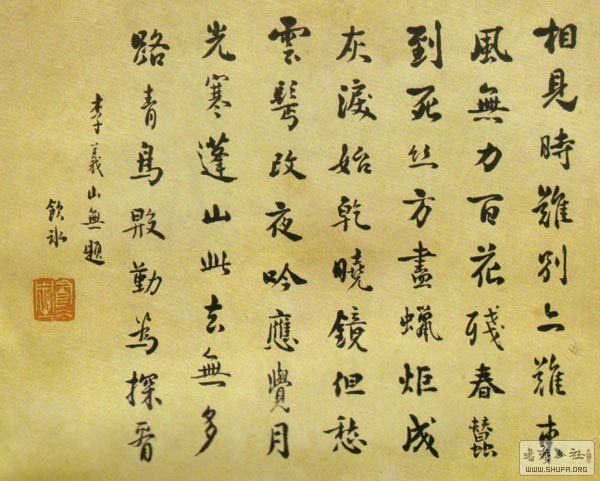 相見時難別亦難東
風無力百花殘春蠶
到死絲方盡蠟炬成
灰淚始乾曉鏡但愁
雲鬢改夜吟應覺月
光寒蓬山此去無多
路青鳥殷勤為探看
李義山無題
飲冰
WWW.SHUFA.ORG